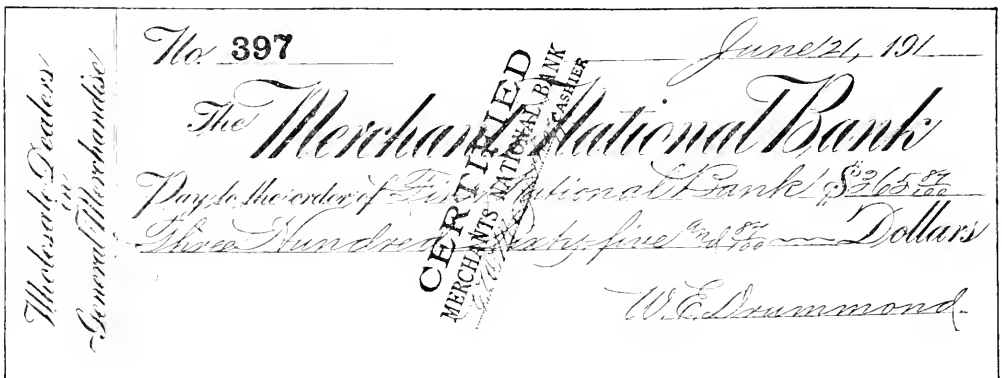 Wholesale Dealers
in
General Merchandise
No. 397
June 21, 191
The Merchants National Bank
Pay to the order of First National Bank $365 87/100
Three Hundred Sixty-five and 87/100 Dollars
W. E. Drummond.
CERTIFIED
MERCHANTS NATIONAL BANK
CASHIER